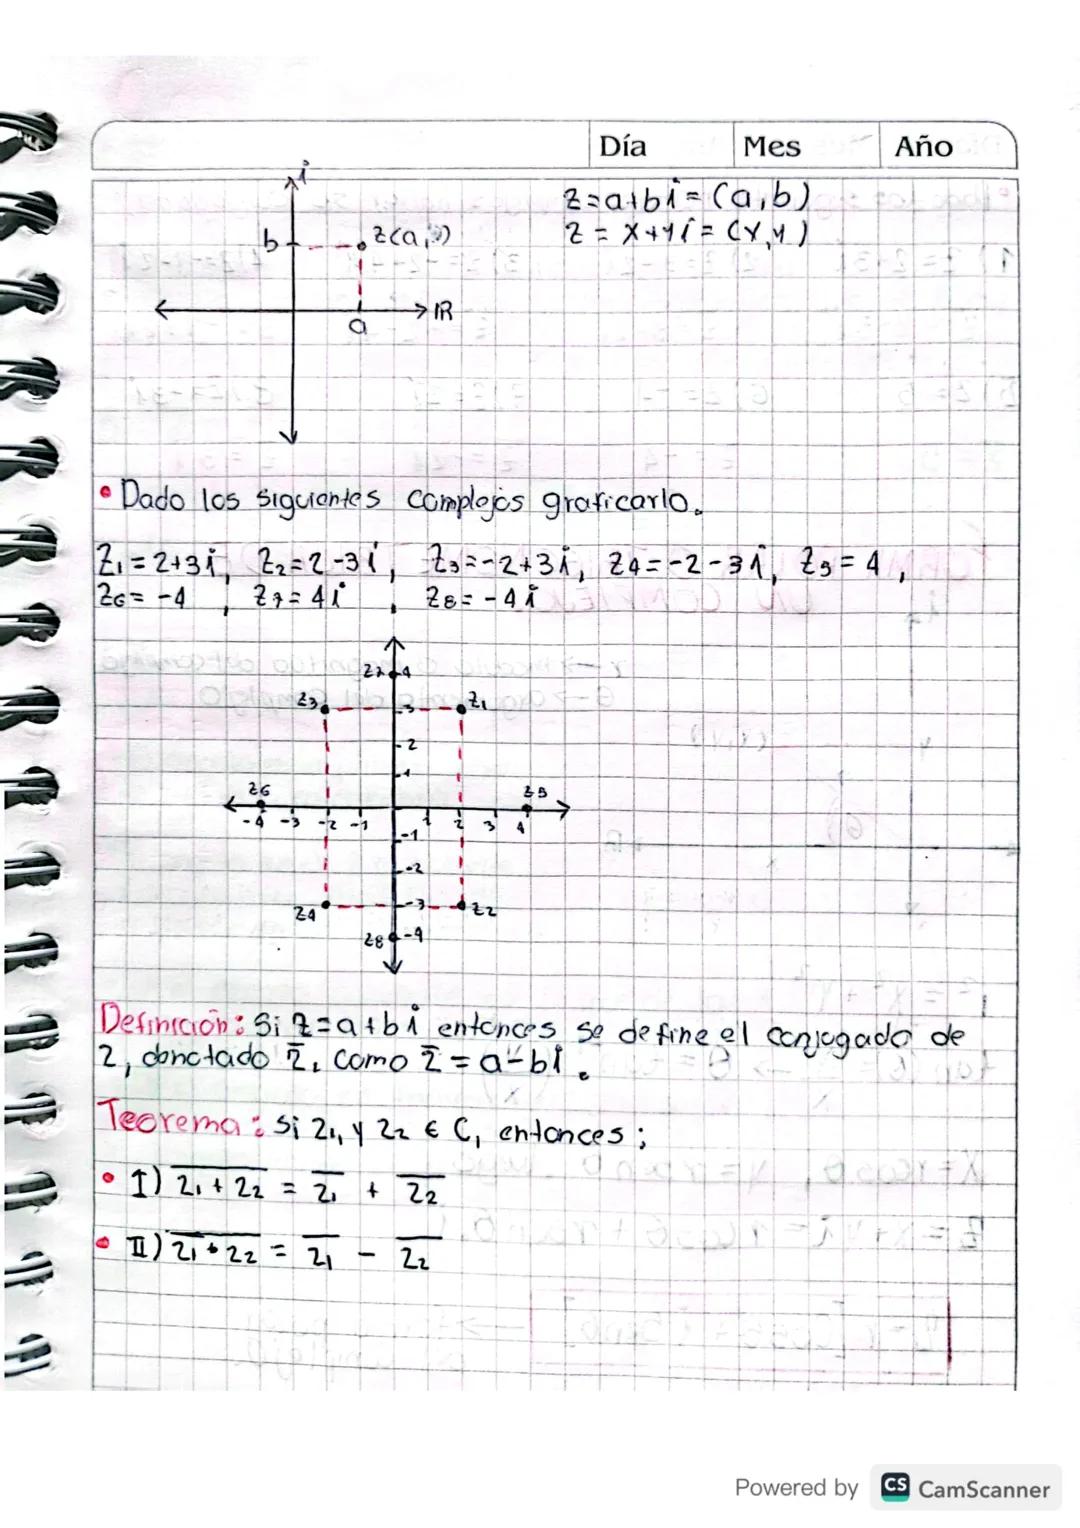 Día Mes Año
i
z=a+bi=(a,b)
b z(a,b)
z=x+yi=(x,y)
IR
a
• Dado los siguientes complejos graficarlo.
Z₁=2+3i, Z₂=2-3i, Z₃=-2+3i, Z₄=-2-3i, Z₅=4,
Z₆=-4, Z₇=4i, Z₈=-4i
Z₇ 4
Z₃ 3 Z₁
2
1
Z₆ Z₅
-4 -3 -2 -1 1 2 3 4
-1
-2
Z₄ -3 Z₂
Z₈ -4
Definición: Si z=a+bi entonces se define el conjugado de
z, donotado z̅, como z̅=a-bi.
Teorema: Si z₁, y z₂ ∈ C, entonces;
• I) \overline{z₁+z₂} = \overline{z₁} + \overline{z₂}
• II) \overline{z₁•z₂} = \overline{z₁} - \overline{z₂}
Powered by CS CamScanner